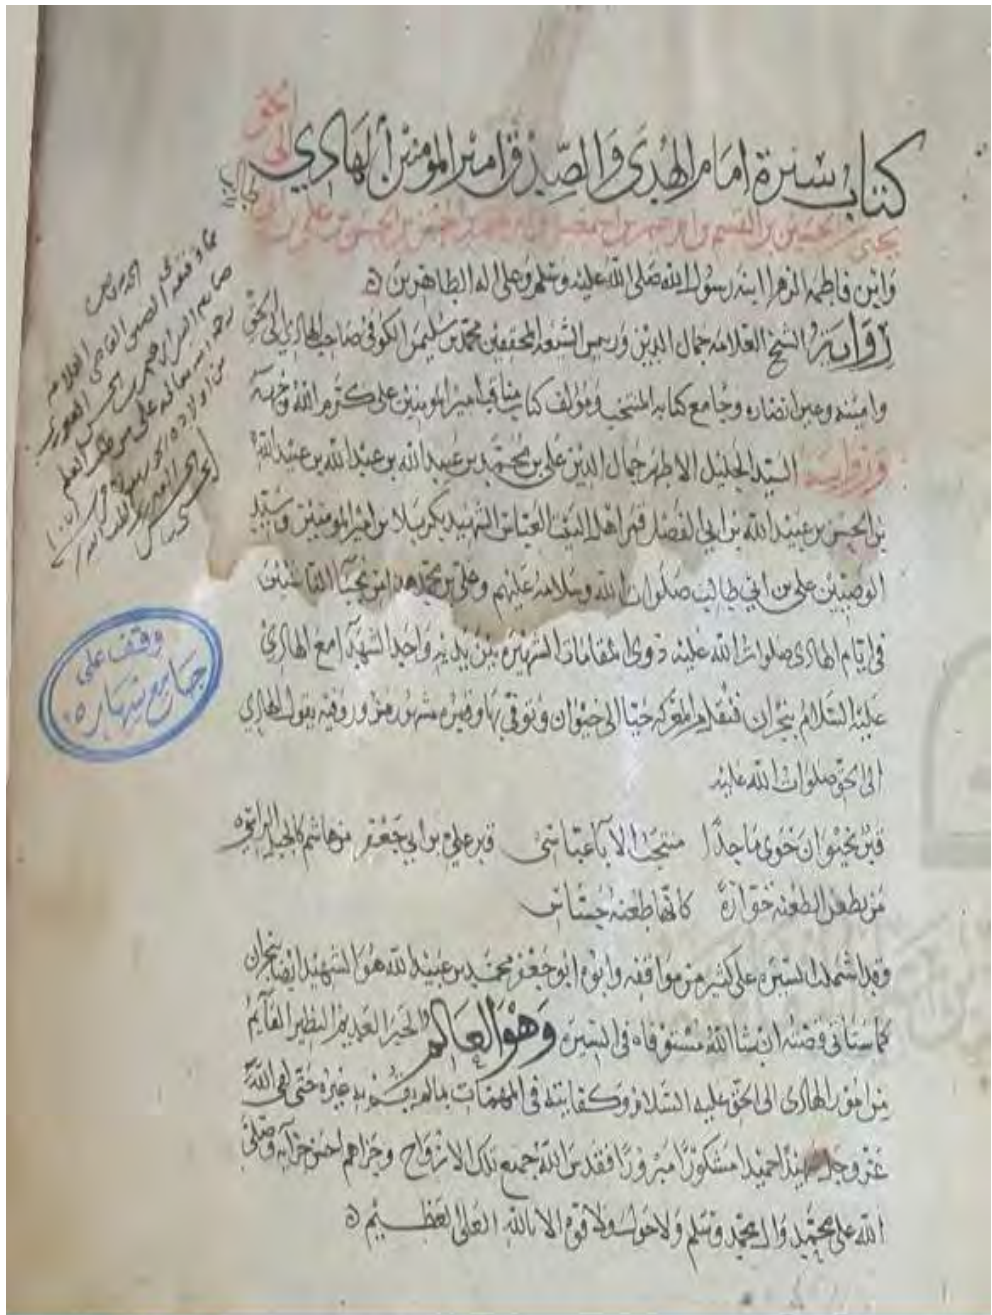 كتاب سيرة امام الهدى والصديق امير المومنين الهادي الى الحق
يحيى بن الحسين بن القسم بن ابرهيم بن الحسن بن الحسن بن علي بن ابي
طالب
وابن فاطمه الزهرا ابنة رسول الله صلى الله عليه وسلم وعلى اله الطاهرين
رواية الشيخ العلامه جمال الدين ورييس الشيعه المحققين محمد بن سليمن الكوفي صاحب الهادي الى الحق
وامينه وعين انصاره وجامع كتابه المنتخب ومؤلف كتاب مناقب امير المومنين علي كرم الله وجهه
ورواية السيد الجليل الاطهر جمال الدين علي بن محمد بن عبيد الله بن عبد الله بن عبيد الله
بن الحسن بن عبيد الله بن ابي الفضل قمر اهل البيت العباس الشهيد بكربلا بن امير المومنين وسيد
الوصيين علي بن ابي طالب صلوات الله وسلامه عليهم وعلي بن محمد هذا من
في ايام الهادي صلوات الله عليه ذوي المقامات الشهيره بين يديه واحد الشهدآ مع الهادي
عليه السلام بنجران فنقل من المعركه حيا الى خيوان وتوفي بها وقبره مشهور مزور وفيه يقول الهادي
الى الحق صلوات الله عليه
قبر بخيوان حوى ماجدا منتخب الآبا عباسي قبر علي بن ابي جعفر من هاشم كالجبل الراسي
من يطعن الطعنه خوارة كانها طعنة جساس
وقد اشتملت السيره على كثير من مواقفه وابوه ابو جعفر محمد بن عبيد الله هو الشهيد ايضا بنجران
كما ستاتي قصته ان شا الله مستوفاه في السيره وهو العالم الحبر العديم النظير القآيم
من امور الهادي الى الحق عليه السلام وكفايته في المهمات بما لم يقم به غيره حتى لقي الله
عز وجل شهيدا حميدا مشكورا مبرورا فقدس الله جميع تلك الارواح وجزاهم احسن جزآيه وصلى
الله على محمد وآل محمد وسلم ولا حول ولا قوه الا بالله العلي العظيم
الحمد لله
القاضي العلامه
رحمه الله تعالى على
وقف على
جامع شهاره